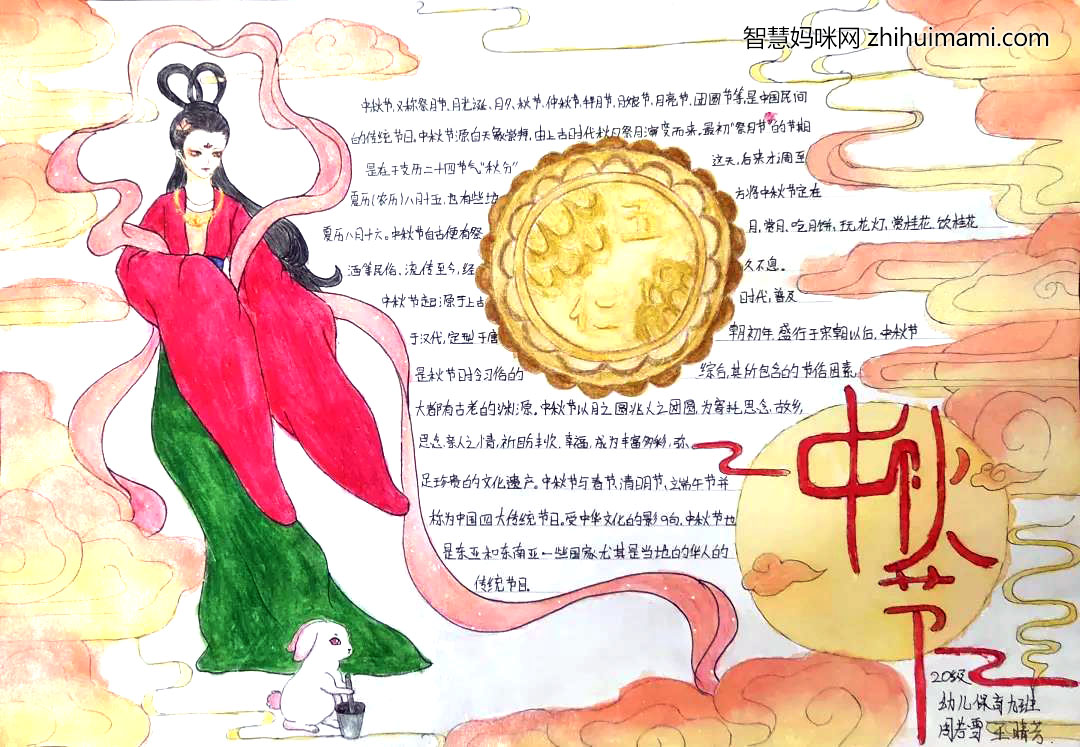 智慧妈咪网 zhihuimami.com
中秋节,又称祭月节、月光诞、月夕、秋节、仲秋节、拜月节、月娘节、月亮节、团圆节等,是中国民间
的传统节日。中秋节源自天象崇拜,由上古时代秋夕祭月演变而来。最初“祭月节”的节期
是在干支历二十四节气“秋分” 这天,后来才调至
夏历(农历)八月十五,也有些地 方将中秋节定在
夏历八月十六。中秋节自古便有祭 月、赏月、吃月饼、玩花灯、赏桂花、饮桂花
酒等民俗,流传至今,经 久不息。
中秋节起源于上古 时代,普及
于汉代,定型于唐 朝初年,盛行于宋朝以后。中秋节
是秋节时令习俗的 综合,其所包含的节俗因素,
大都有古老的渊源。中秋节以月之圆兆人之团圆,为寄托思念故乡,
思念亲人之情,祈盼丰收、幸福,成为丰富多彩、弥
足珍贵的文化遗产。中秋节与春节、清明节、端午节并
称为中国四大传统节日。受中华文化的影响,中秋节也
是东亚和东南亚一些国家尤其是当地的华人的
传统节日。
五
仁
中秋节
20级
幼儿保育九班